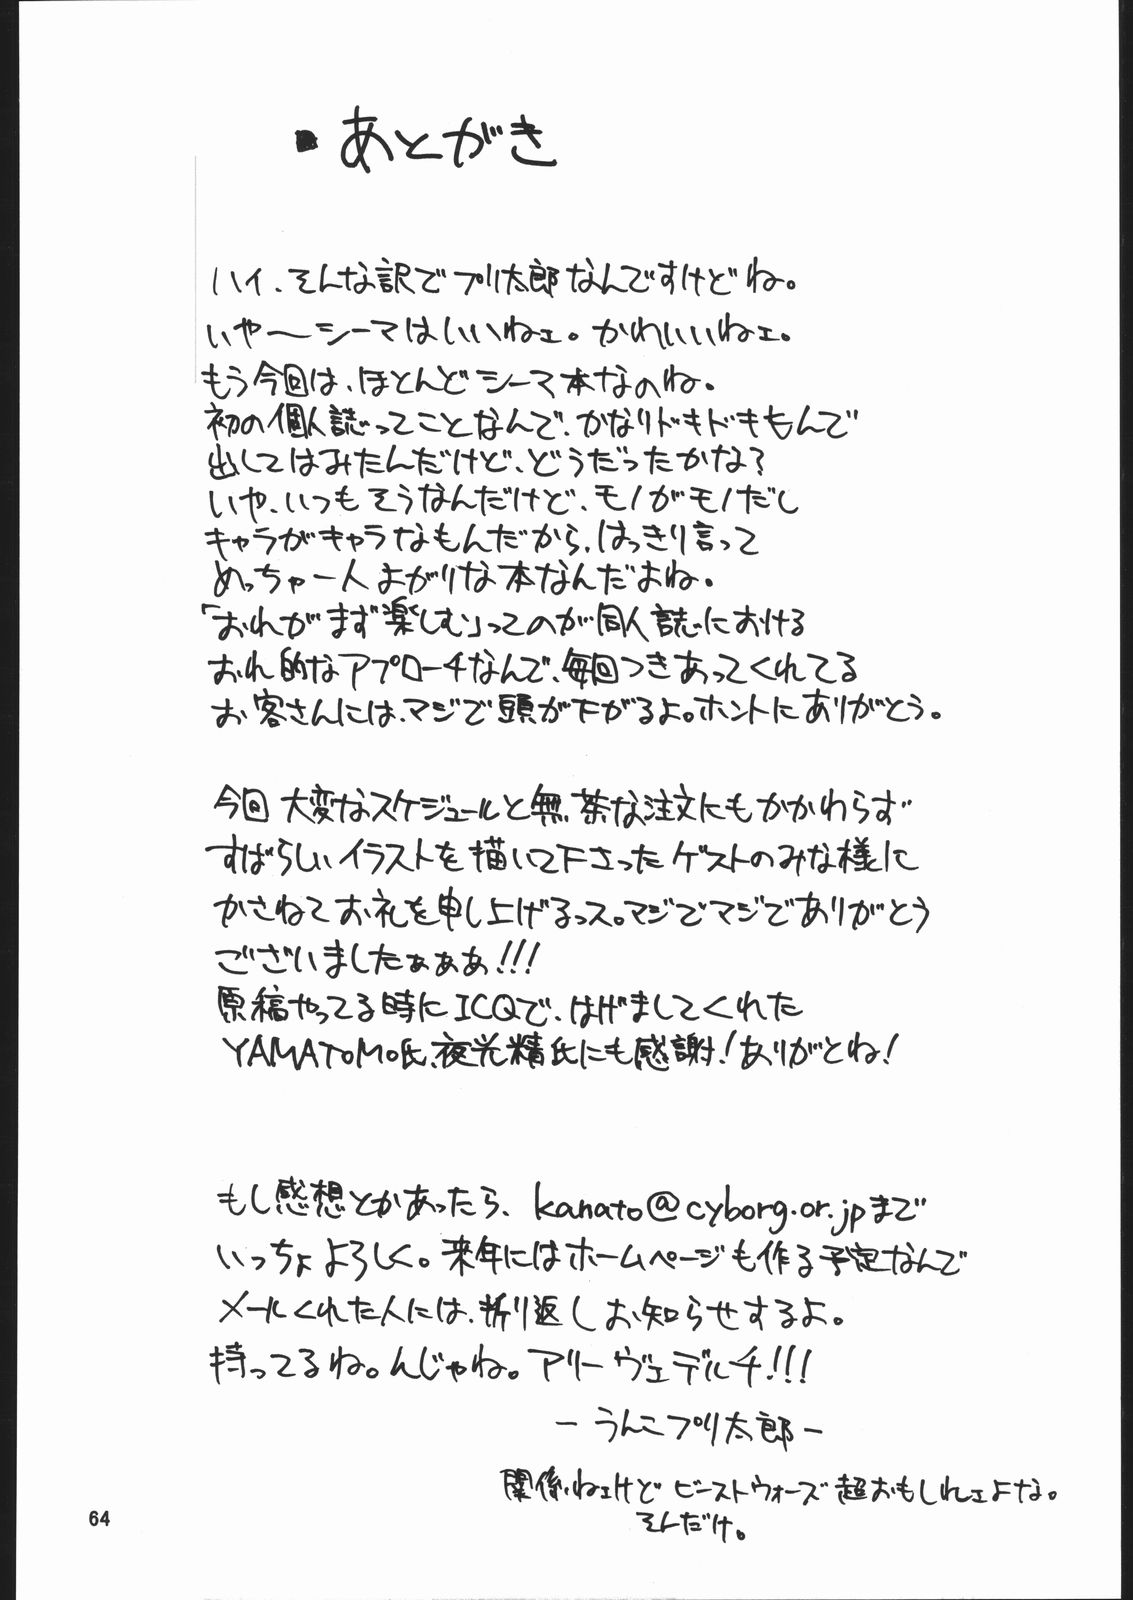 ■あとがき
ハイ、そんな訳でプリ太郎なんですけどね。
いや〜シーマはいいねェ。かわいいねェ。
もう今回は、ほとんどシーマ本なのね。
初の個人誌ってことなんで、かなりドキドキもんで
出してはみたんだけど、どうだったかな?
いや、いつもそうなんだけど、モノがモノだし
キャラがキャラなもんだから、はっきり言って
めっちゃ一人よがりな本なんだよね。
「おれがまず楽しむ」ってのが同人誌における
おれ的なアプローチなんで、毎回つきあってくれてる
お客さんには、マジで頭が下がるよ。ホントにありがとう。
今回大変なスケジュールと無茶な注文にもかかわらず
すばらしいイラストを描いて下さったゲストのみな様に
かさねてお礼を申し上げるっス。マジでマジでありがとう
ございましたぁぁぁ!!!
原稿やってる時にICQで、はげましてくれた
YAMATOMO氏、夜光精氏にも感謝!ありがとね!
もし感想とかあったら、kanato@cyborg.or.jpまで
いっちょよろしく。来年にはホームページも作る予定なんで
メールくれた人には、折り返しお知らせするよ。
待ってるね。んじゃね。アリーヴェデルチ!!!
－うんこプリ太郎－
関係ねェけどビーストウォーズ超おもしれェよな。
そんだけ。
64